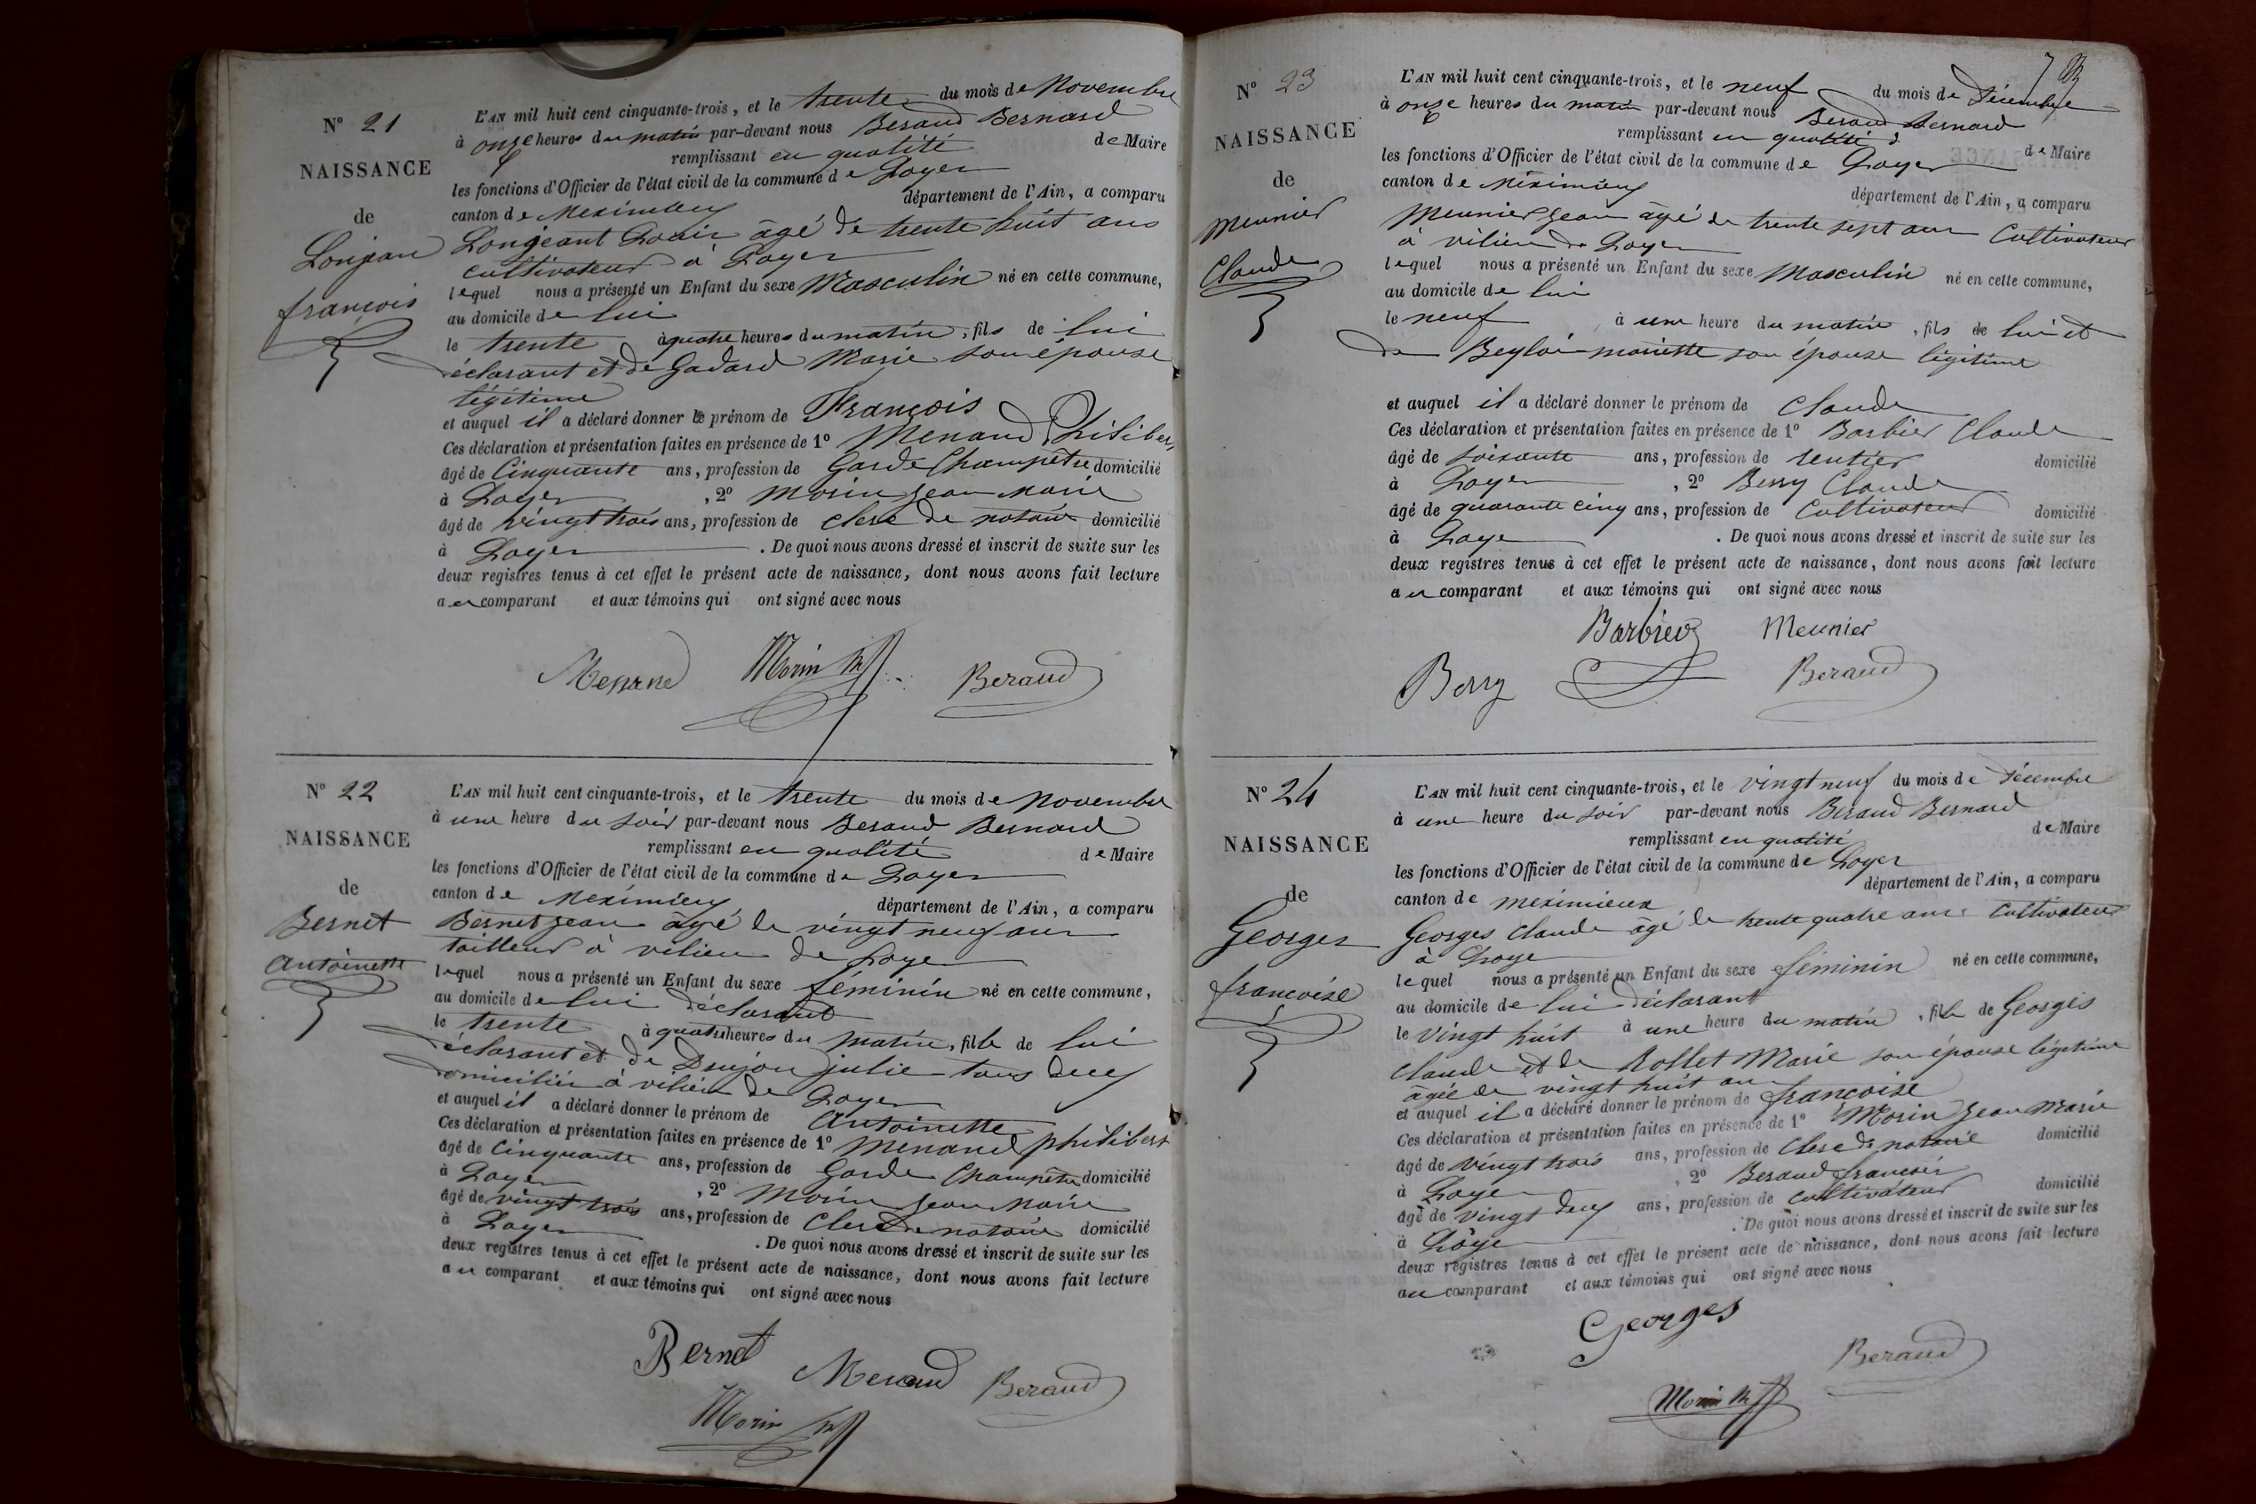 Nº 21
NAISSANCE
de
Lonjean
françois
L'AN mil huit cent cinquante-trois, et le trente du mois de Novembre
à onze heures du matin par-devant nous Beraud Bernard
remplissant en qualité de Maire
les fonctions d'Officier de l'état civil de la commune de Loyes
canton de Meximieux département de l'Ain, a comparu
Longeant Louis âgé de trente huit ans
cultivateur à Loyes
lequel nous a présenté un Enfant du sexe Masculin né en cette commune,
au domicile de lui
le trente à quatre heures du matin, fils de lui
déclarant et de Gadard Marie son épouse
légitime
et auquel il a déclaré donner le prénom de François
Ces déclaration et présentation faites en présence de 1º Menand Philibert
âgé de Cinquante ans, profession de Garde Champêtre domicilié
à Loyes, 2º Morin Jean Marie
âgé de vingt trois ans, profession de clerc de notaire domicilié
à Loyes. De quoi nous avons dressé et inscrit de suite sur les
deux registres tenus à cet effet le présent acte de naissance, dont nous avons fait lecture
au comparant et aux témoins qui ont signé avec nous
Menand Morin Beraud
Nº 22
NAISSANCE
de
Bernet
antoinette
L'AN mil huit cent cinquante-trois, et le trente du mois de Novembre
à une heure du soir par-devant nous Beraud Bernard
remplissant en qualité de Maire
les fonctions d'Officier de l'état civil de la commune de Loyes
canton de Meximieux département de l'Ain, a comparu
Bernet Jean âgé de vingt neuf ans
tailleur à vilieu de Loyes
lequel nous a présenté un Enfant du sexe féminin né en cette commune,
au domicile de lui déclarant
le trente à quatre heures du matin, fille de lui
déclarant et de Drujon julie tous deux
domiciliés à vilieu de Loyes
et auquel il a déclaré donner le prénom de Antoinette
Ces déclaration et présentation faites en présence de 1º Menand philibert
âgé de Cinquante ans, profession de Garde Champêtre domicilié
à Loyes, 2º Morin Jean Marie
âgé de vingt trois ans, profession de Clerc de notaire domicilié
à Loyes. De quoi nous avons dressé et inscrit de suite sur les
deux registres tenus à cet effet le présent acte de naissance, dont nous avons fait lecture
au comparant et aux témoins qui ont signé avec nous
Bernet Menand Beraud
Morin
7
Nº 23
NAISSANCE
de
Meunier
Claude
L'AN mil huit cent cinquante-trois, et le neuf du mois de Décembre
à onze heures du matin par-devant nous Beraud Bernard
remplissant en qualité de Maire
les fonctions d'Officier de l'état civil de la commune de Loyes
canton de Meximieux département de l'Ain, a comparu
Meunier Jean âgé de trente sept ans Cultivateur
à vilieu de Loyes
lequel nous a présenté un Enfant du sexe Masculin né en cette commune,
au domicile de lui
le neuf à une heure du matin, fils de lui et
de mariette son épouse légitime
et auquel il a déclaré donner le prénom de Claude
Ces déclaration et présentation faites en présence de 1º Barbier Claude
âgé de soixante ans, profession de rentier domicilié
à Loyes, 2º Berry Claude
âgé de quarante cinq ans, profession de Cultivateur domicilié
à Loyes. De quoi nous avons dressé et inscrit de suite sur les
deux registres tenus à cet effet le présent acte de naissance, dont nous avons fait lecture
au comparant et aux témoins qui ont signé avec nous
Barbier Meunier
Berry Beraud
Nº 24
NAISSANCE
de
Georges
francoise
L'AN mil huit cent cinquante-trois, et le vingt neuf du mois de Décembre
à une heure du soir par-devant nous Beraud Bernard
remplissant en qualité de Maire
les fonctions d'Officier de l'état civil de la commune de Loyes
canton de meximieux département de l'Ain, a comparu
Georges claude âgé de trente quatre ans Cultivateur
à Loyes
lequel nous a présenté un Enfant du sexe féminin né en cette commune,
au domicile de lui déclarant
le vingt huit à une heure du matin, fille de Georges
claude et de Rollet Marie son épouse légitime
âgée de vingt huit ans
et auquel il a déclaré donner le prénom de francoise
Ces déclaration et présentation faites en présence de 1º Morin Jean Marie
âgé de vingt trois ans, profession de Clerc de notaire domicilié
à Loyes, 2º Beraud francois
âgé de vingt deux ans, profession de cultivateur domicilié
à Loyes. De quoi nous avons dressé et inscrit de suite sur les
deux registres tenus à cet effet le présent acte de naissance, dont nous avons fait lecture
au comparant et aux témoins qui ont signé avec nous
Georges
Beraud
Morin